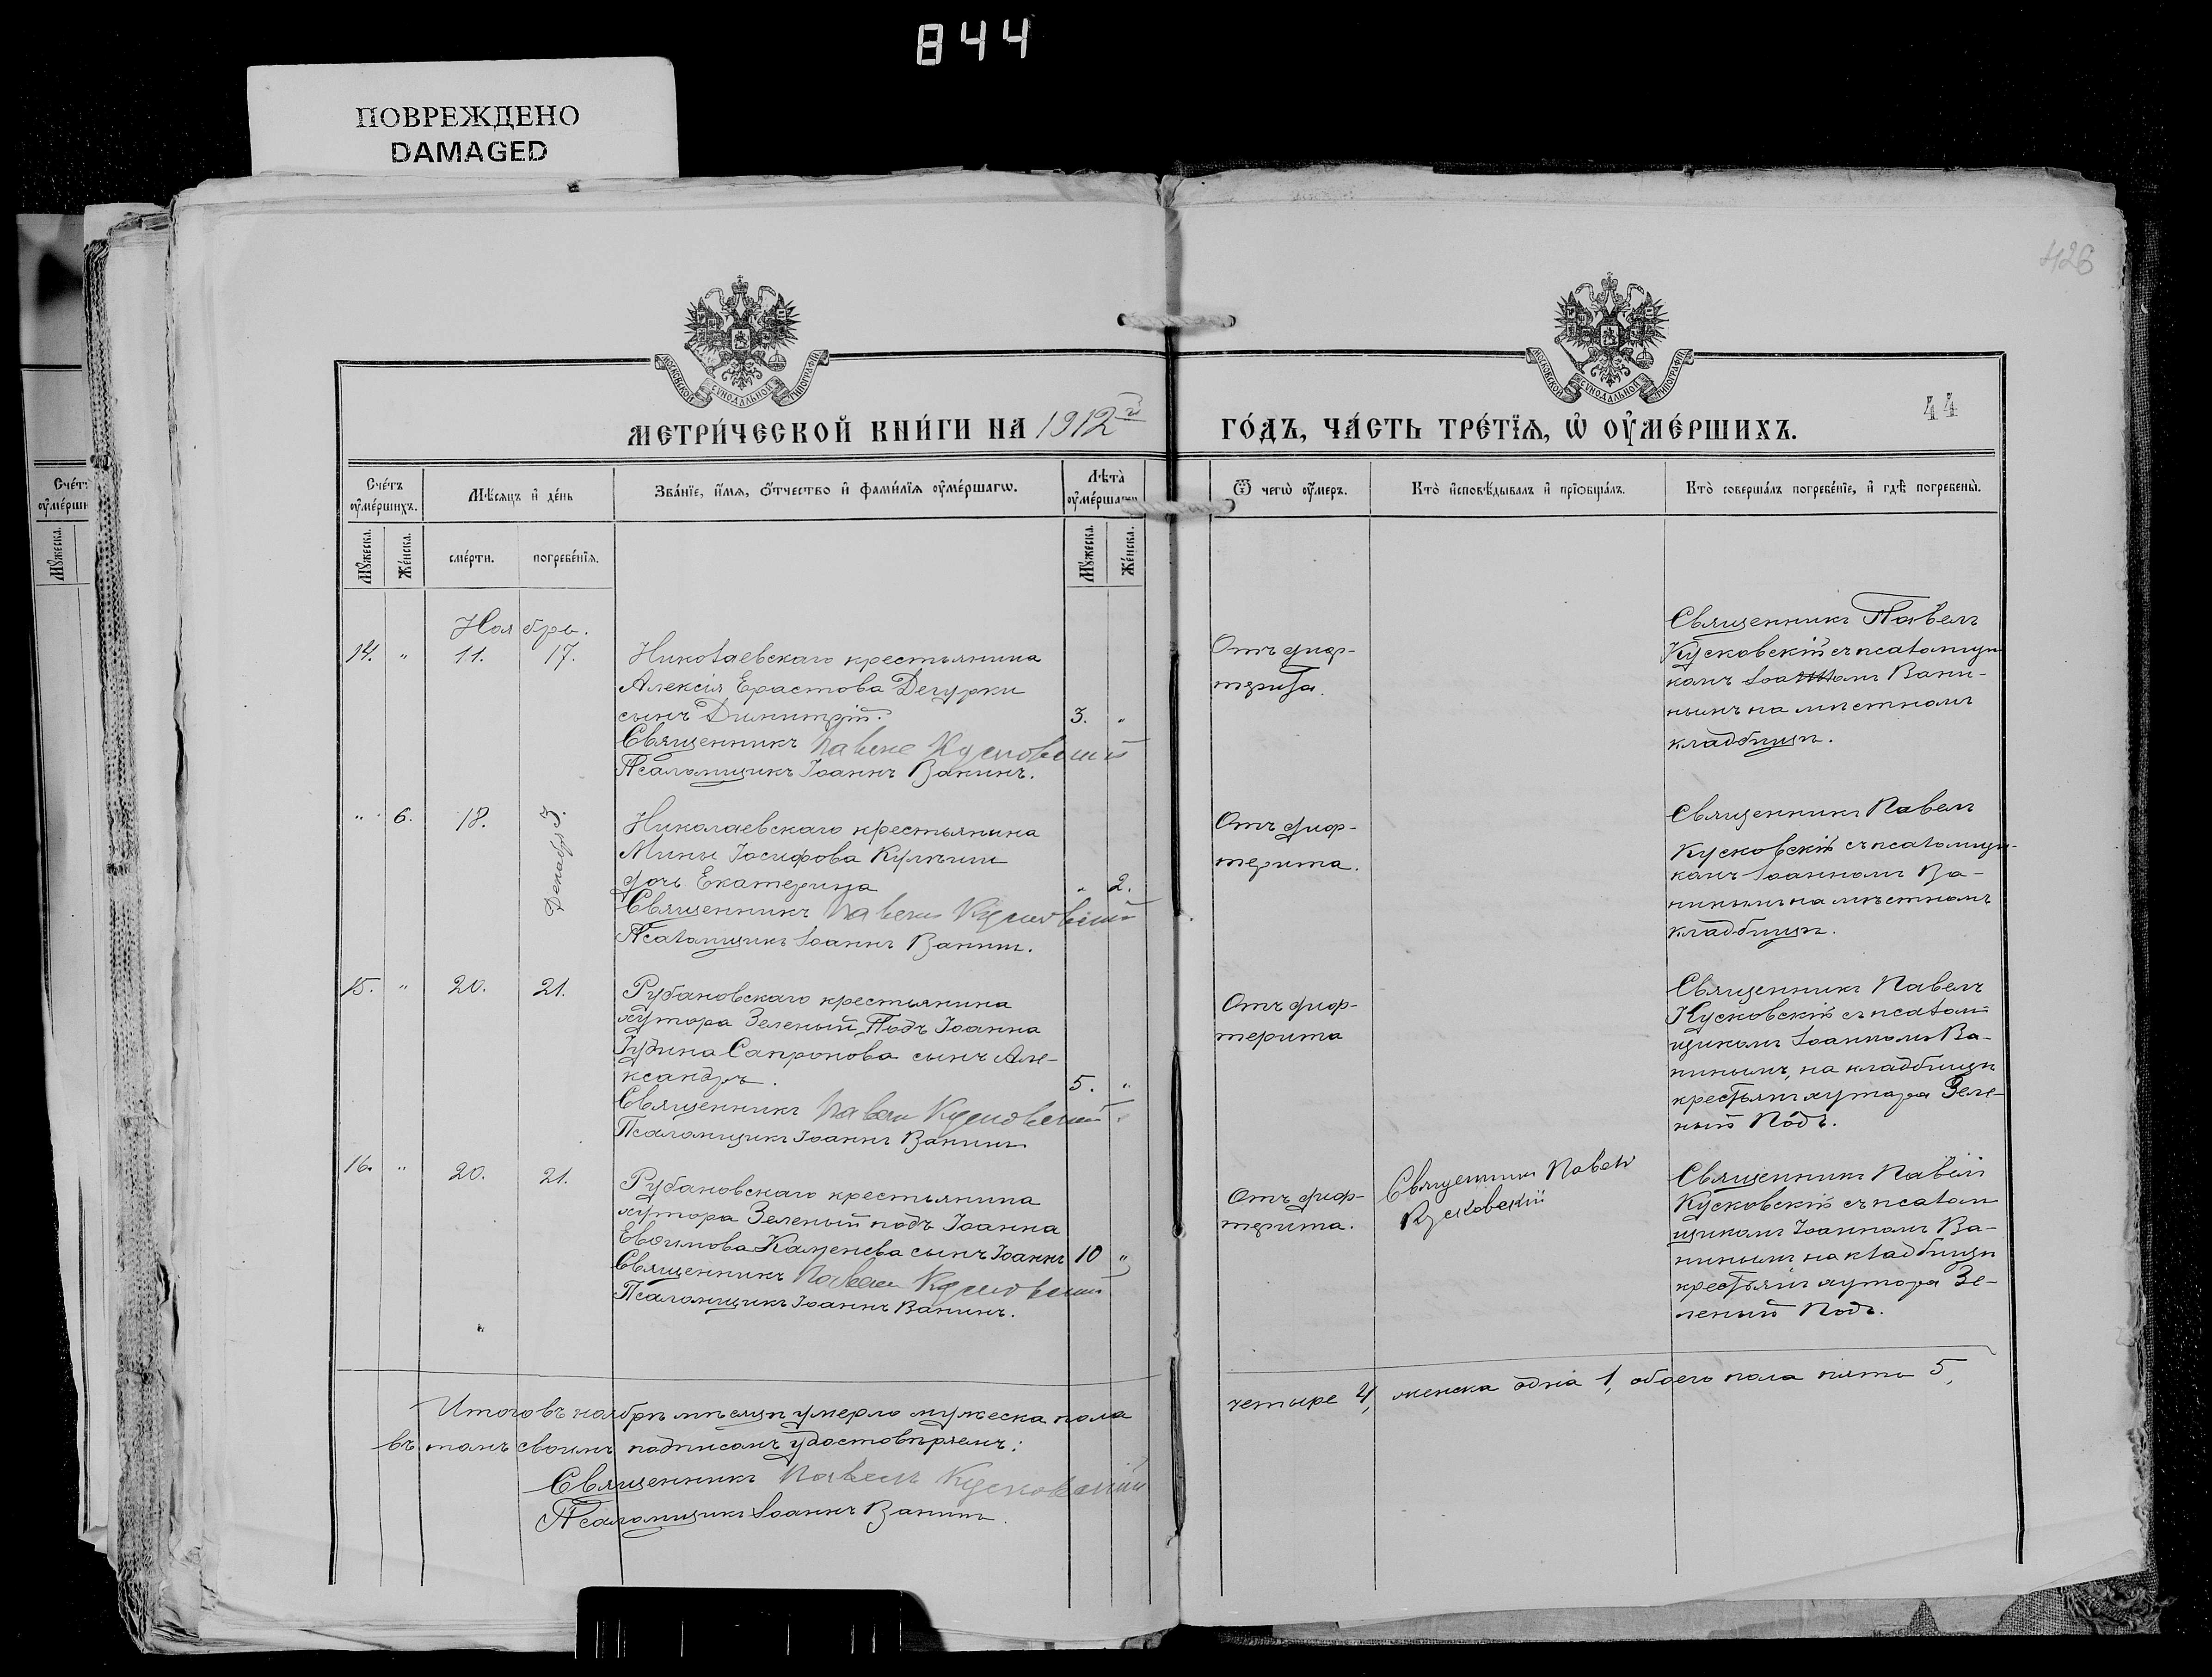 844
ПОВРЕЖДЕНО
DAMAGED
426
МОСКОВСКОЙ СѴНОДАЛЬНОЙ ТИПОГРАФІИ
МОСКОВСКОЙ СѴНОДАЛЬНОЙ ТИПОГРАФІИ
44
МЕТРИ́ЧЕСКОЙ КНИ́ГИ НА 1912й
ГО́ДЪ, ЧА́СТЬ ТРЕ́ТЇѦ, Ѡ҆ ОУ҆МЕ́РШИХЪ.
Сче́тъ
оу҆ме́ршихъ.
Мѣ́сѧцъ и҆ де́нь
Зва́нїе, и҆́мѧ, ѻ҆́тчество и҆ фами́лїѧ оу҆ме́ршагѡ.
Лѣ́та
оу҆ме́ршагѡ
Мꙋ́жеска.
Же́нска.
сме́рти.
погребе́нїѧ.
Мꙋ́жеска.
Же́нска.
Ѿ чегѡ̀ оу҆́меръ.
Кто̀ и҆сповѣ́дывалъ и҆ прїѡбща́лъ.
Кто̀ соверша́лъ погребе́нїе, и҆ гдѣ̀ погребены̀.
Сче́тъ
Мꙋ́жеска
Ноябрь.
14. " 11. 17.
Николаевскаго крестьянина
Алексія Ерастова Дегурки
сынъ Димитрій. 3. "
Священникъ Павелъ Кусковскій
Псаломщикъ Іоаннъ Ванинъ.
Отъ диф-
терита.
Священникъ Павелъ
Кусковскій съ псаломщи
комъ Іоанномъ Вани-
нымъ на мѣстномъ
кладбищѣ.
" 6. 18. Декабр 3.
Николаевскаго крестьянина
Мины Іосифова
дочь Екатерина " 2.
Священникъ Павелъ Кусковскій
Псаломщикъ Іоаннъ Ванинъ.
Отъ диф-
терита.
Священникъ Павелъ
Кусковскій съ псаломщи-
комъ Іоанномъ Ва-
нинымъ на мѣстномъ
кладбищѣ.
15. " 20. 21.
Рубановскаго крестьянина
хутора Зеленый Подъ Іоанна
Іудина Сапронова сынъ Але-
ксандръ. 5. "
Священникъ Павелъ Кусковскій
Псаломщикъ Іоаннъ Ванинъ
Отъ диф-
терита
Священникъ Павелъ
Кусковскій съ псалом
щикомъ Іоанномъ Ва-
нинымъ, на кладбищѣ
крестьянъ хутора Зеле-
ный Подъ.
16. " 20. 21.
Рубановскаго крестьянина
хутора Зеленый подъ Іоанна
Евѳимова Каменева сынъ Іоаннъ 10 "
Священникъ Павелъ Кусковскій
Псаломщикъ Іоаннъ Ванинъ.
Отъ диф-
терита.
Священникъ Павелъ
Кусковскій
Священникъ Павелъ
Кусковскій съ псалом
щикомъ Іоанномъ Ва-
нинымъ на кладбищѣ
крестьянъ хутора Зе-
леный Подъ.
Итого въ ноябрѣ мѣсяцѣ умерло мужеска пола
четыре 4, женска одна 1, обоего пола пять 5,
въ томъ своимъ подписомъ удостовѣряемъ:
Священникъ Павелъ Кусковскій
Псаломщикъ Іоаннъ Ванинъ.